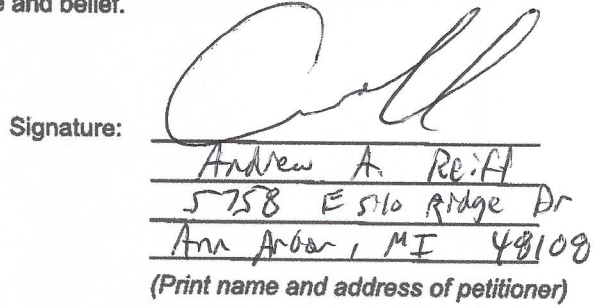 e and belief.
Signature:
Andrew A. Reiff
5758 E Silo Ridge Dr
Ann Arbor, MI 48108
(Print name and address of petitioner)